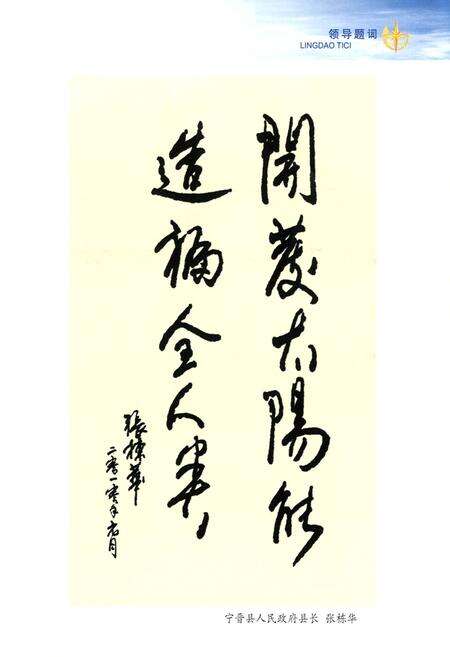 领导题词
LINGDAO TICI
開發太陽能
造福全人类
張棟華
二零一零年
宁晋县人民政府县长 张栋华